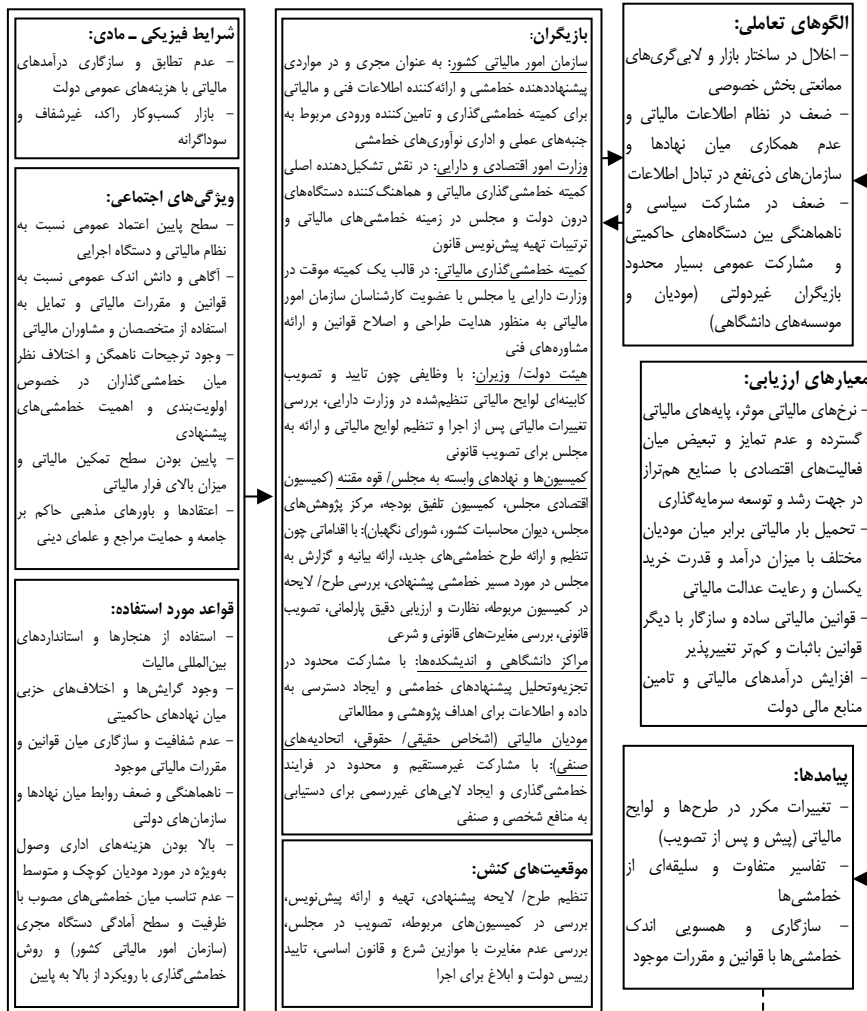 الگوهای تعاملی:
- اخلال در ساختار بازار و لابی‌گری‌های
ممانعتی بخش خصوصی
- ضعف در نظام اطلاعات مالیاتی و
عدم همکاری میان نهادها و
سازمان‌های ذی‌نفع در تبادل اطلاعات
- ضعف در مشارکت سیاسی و
ناهماهنگی بین دستگاه‌های حاکمیتی
و مشارکت عمومی بسیار محدود
بازیگران غیردولتی (مودیان و
موسسه‌های دانشگاهی)
معیارهای ارزیابی:
- نرخ‌های مالیاتی موثر، پایه‌های مالیاتی
گسترده و عدم تمایز و تبعیض میان
فعالیت‌های اقتصادی با صنایع هم‌تراز
در جهت رشد و توسعه سرمایه‌گذاری
- تحمیل بار مالیاتی برابر میان مودیان
مختلف با میزان درآمد و قدرت خرید
یکسان و رعایت عدالت مالیاتی
- قوانین مالیاتی ساده و سازگار با دیگر
قوانین باثبات و کم‌تر تغییرپذیر
- افزایش درآمدهای مالیاتی و تامین
منابع مالی دولت
پیامدها:
- تغییرات مکرر در طرح‌ها و لوایح
مالیاتی (پیش و پس از تصویب)
- تفاسیر متفاوت و سلیقه‌ای از
خط‌مشی‌ها
- سازگاری و همسویی اندک
خط‌مشی‌ها با قوانین و مقررات موجود
بازیگران:
سازمان امور مالیاتی کشور: به عنوان مجری و در مواردی
پیشنهاددهنده خط‌مشی و ارائه‌کننده اطلاعات فنی و مالیاتی
برای کمیته خط‌مشی‌گذاری و تامین‌کننده ورودی مربوط به
جنبه‌های عملی و اداری نوآوری‌های خط‌مشی
وزارت امور اقتصادی و دارایی: در نقش تشکیل‌دهنده اصلی
کمیته خط‌مشی‌گذاری مالیاتی و هماهنگ‌کننده دستگاه‌های
درون دولت و مجلس در زمینه خط‌مشی‌های مالیاتی و
ترتیبات تهیه پیش‌نویس قانون
کمیته خط‌مشی‌گذاری مالیاتی: در قالب یک کمیته موقت در
وزارت دارایی یا مجلس با عضویت کارشناسان سازمان امور
مالیاتی به منظور هدایت طراحی و اصلاح قوانین و ارائه
مشاوره‌های فنی
هیئت دولت/ وزیران: با وظایفی چون تایید و تصویب
کابینه‌ای لوایح مالیاتی تنظیم‌شده در وزارت دارایی، بررسی
تغییرات مالیاتی پس از اجرا و تنظیم لوایح مالیاتی و ارائه به
مجلس برای تصویب قانونی
کمیسیون‌ها و نهادهای وابسته به مجلس/ قوه مقننه (کمیسیون
اقتصادی مجلس، کمیسیون تلفیق بودجه، مرکز پژوهش‌های
مجلس، دیوان محاسبات کشور، شورای نگهبان): با اقداماتی چون
تنظیم و ارائه طرح خط‌مشی‌های جدید، ارائه بیانیه و گزارش به
مجلس در مورد مسیر خط‌مشی پیشنهادی، بررسی طرح/ لایحه
در کمیسیون مربوطه، نظارت و ارزیابی دقیق پارلمانی، تصویب
قانونی، بررسی مغایرت‌های قانونی و شرعی
مراکز دانشگاهی و اندیشکده‌ها: با مشارکت محدود در
تجزیه‌وتحلیل پیشنهادهای خط‌مشی و ایجاد دسترسی به
داده و اطلاعات برای اهداف پژوهشی و مطالعاتی
مودیان مالیاتی (اشخاص حقیقی/ حقوقی، اتحادیه‌های
صنفی): با مشارکت غیرمستقیم و محدود در فرایند
خط‌مشی‌گذاری و ایجاد لابی‌های غیررسمی برای دستیابی
به منافع شخصی و صنفی
موقعیت‌های کنش:
تنظیم طرح/ لایحه پیشنهادی، تهیه و ارائه پیش‌نویس،
بررسی در کمیسیون‌های مربوطه، تصویب در مجلس،
بررسی عدم مغایرت با موازین شرع و قانون اساسی، تایید
رییس دولت و ابلاغ برای اجرا
شرایط فیزیکی ـ مادی:
- عدم تطابق و سازگاری درآمدهای
مالیاتی با هزینه‌های عمومی دولت
- بازار کسب‌وکار راکد، غیرشفاف و
سوداگرانه
ویژگی‌های اجتماعی:
- سطح پایین اعتماد عمومی نسبت به
نظام مالیاتی و دستگاه اجرایی
- آگاهی و دانش اندک عمومی نسبت به
قوانین و مقررات مالیاتی و تمایل به
استفاده از متخصصان و مشاوران مالیاتی
- وجود ترجیحات ناهمگن و اختلاف نظر
میان خط‌مشی‌گذاران در خصوص
اولویت‌بندی و اهمیت خط‌مشی‌های
پیشنهادی
- پایین بودن سطح تمکین مالیاتی و
میزان بالای فرار مالیاتی
- اعتقادها و باورهای مذهبی حاکم بر
جامعه و حمایت مراجع و علمای دینی
قواعد مورد استفاده:
- استفاده از هنجارها و استانداردهای
بین‌المللی مالیات
- وجود گرایش‌ها و اختلاف‌های حزبی
میان نهادهای حاکمیتی
- عدم شفافیت و سازگاری میان قوانین و
مقررات مالیاتی موجود
- ناهماهنگی و ضعف روابط میان نهادها و
سازمان‌های دولتی
- بالا بودن هزینه‌های اداری وصول
به‌ویژه در مورد مودیان کوچک و متوسط
- عدم تناسب میان خط‌مشی‌های مصوب با
ظرفیت و سطح آمادگی دستگاه مجری
(سازمان امور مالیاتی کشور) و روش
خط‌مشی‌گذاری با رویکرد از بالا به پایین